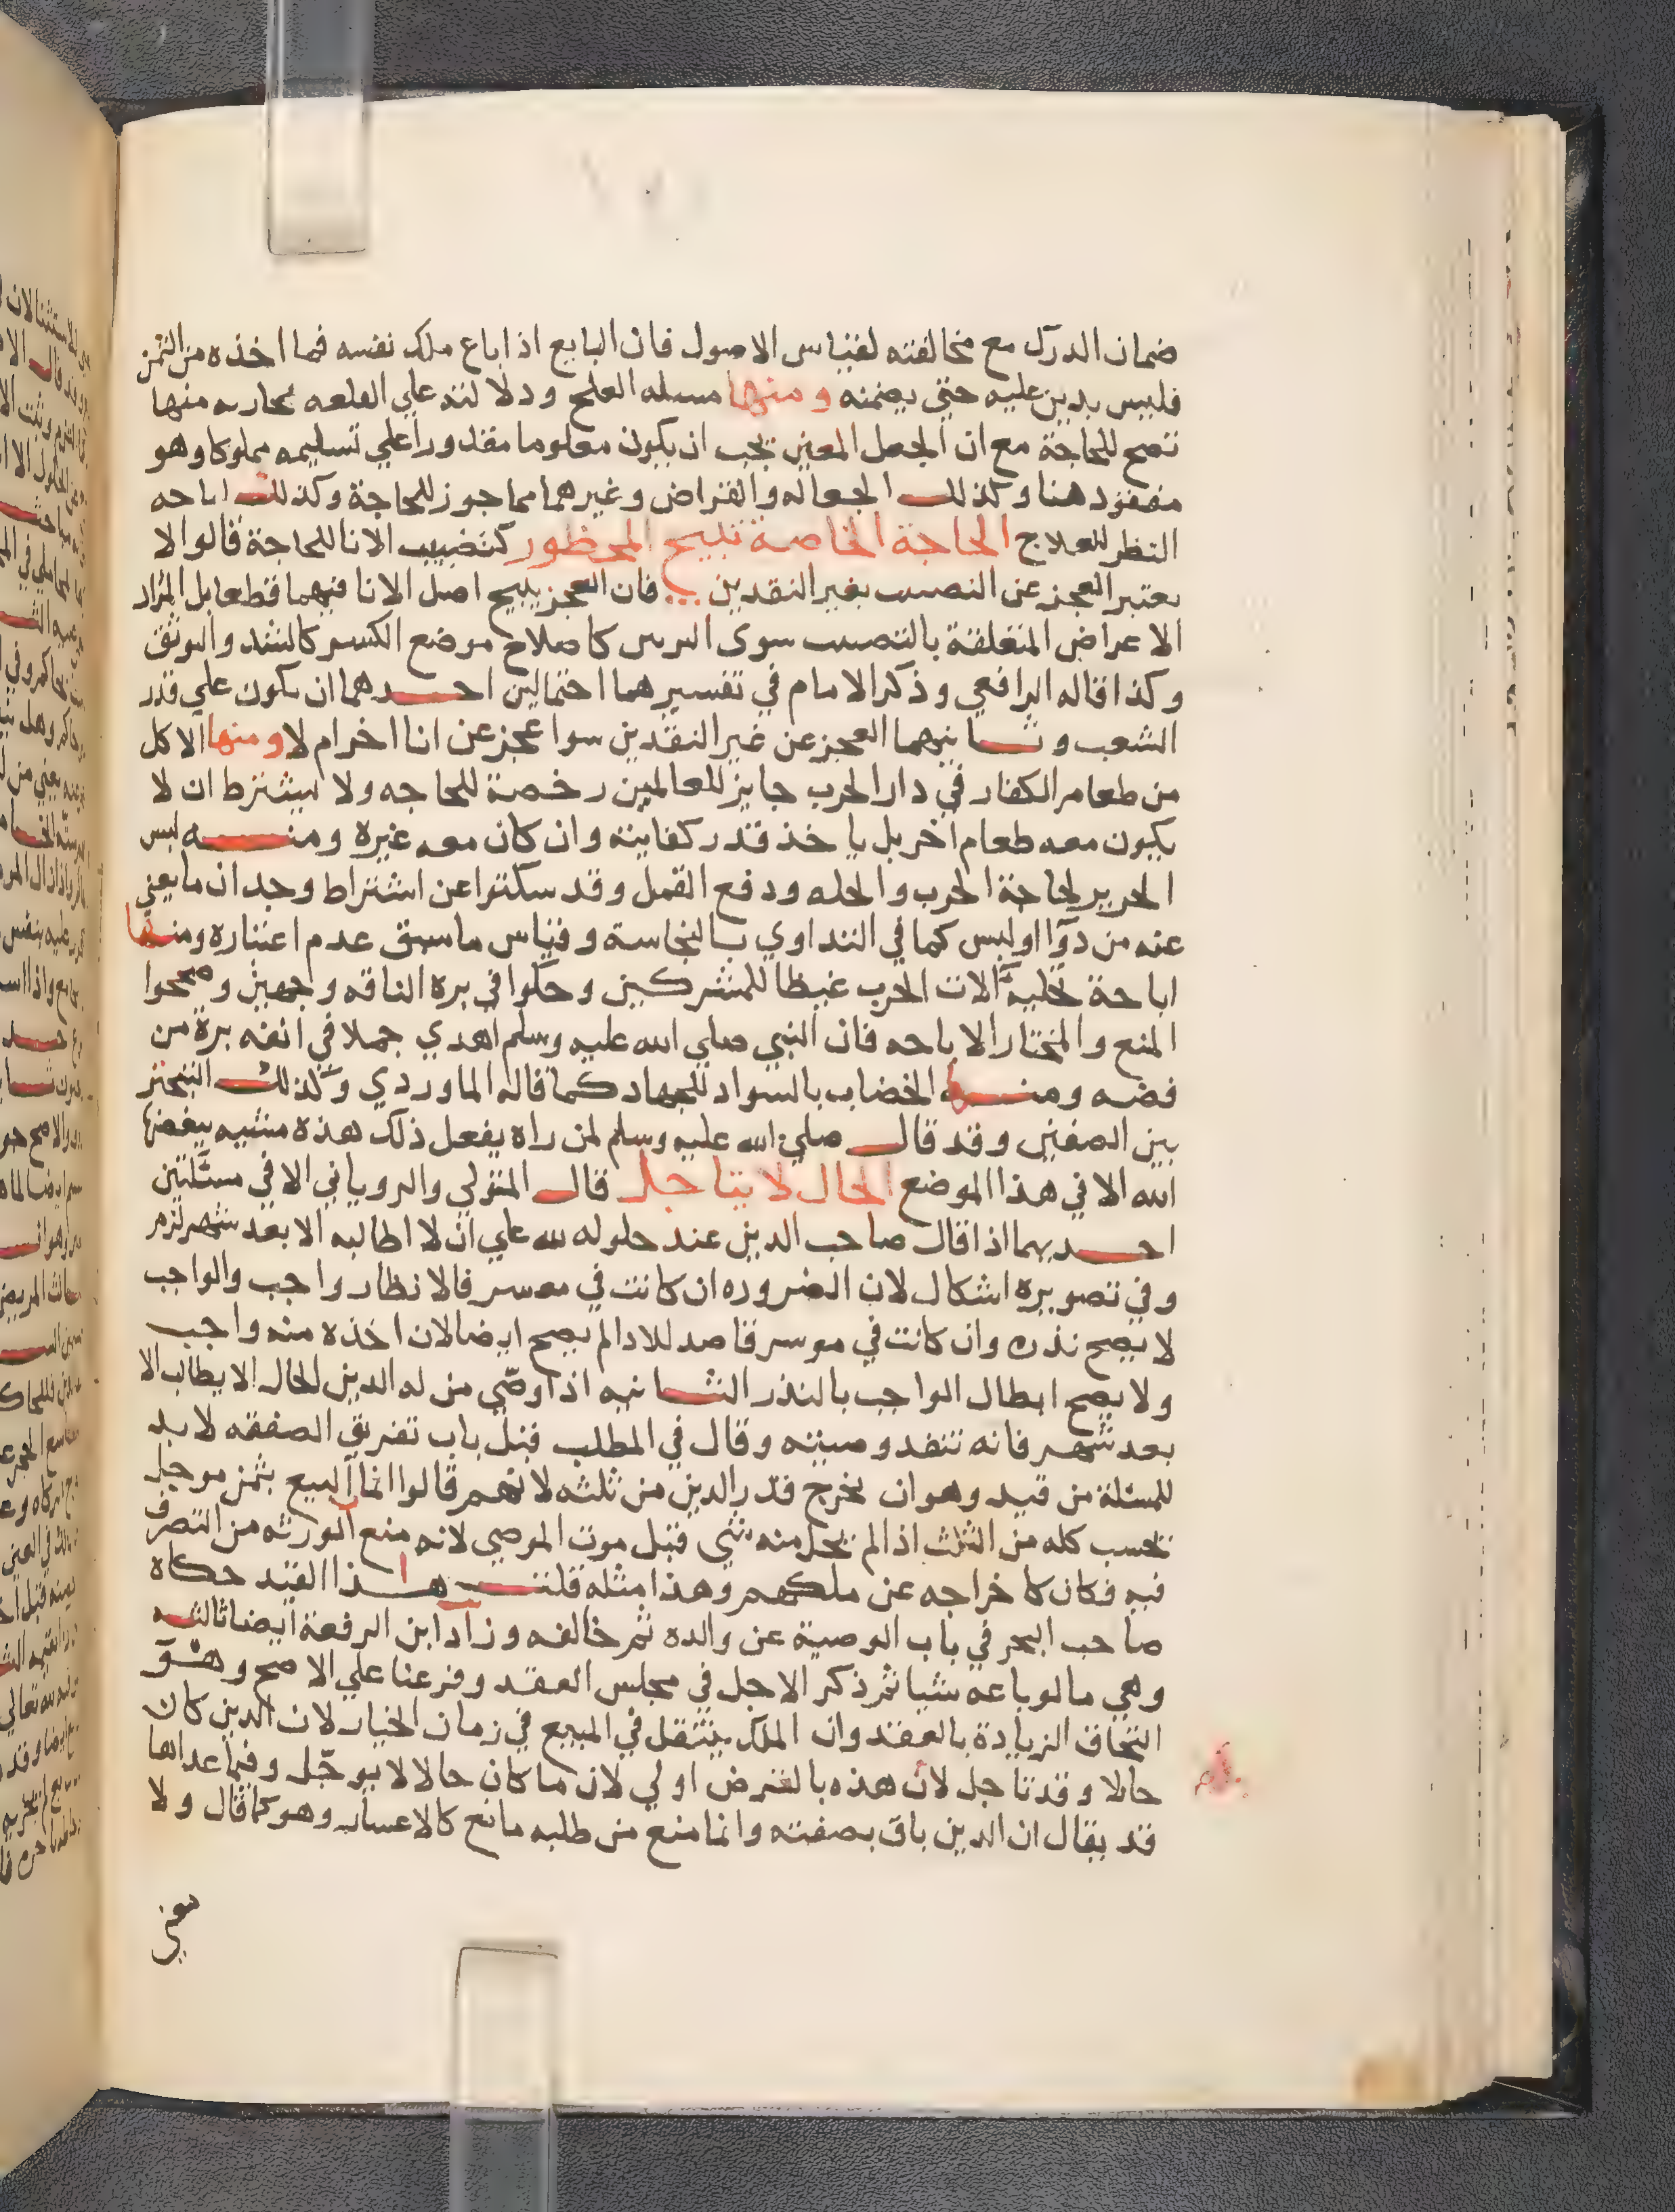 ضمان الدرك مع مخالفته لقياس الاصول فان البايع اذا باع ملك نفسه فما اخذه من الثمن
فليس بدين عليه حتي يضمنه ومنها مسله العلج ودلالته علي القلعه بجاريه منها
تصح للحاجة مع ان الجعل المعين يجب ان يكون معلوما مقدورا علي تسليمه مملوكا وهو
مفقود هنا وكذلك الجعاله والقراض وغيرهما مما جوز للحاجة وكذلك اباحه
النظر للعلاج الحاجة الخاصة تبيح المحظور كتضبيب الانا للحاجة قالوا لا
يعتبر العجز عن التضبيب بغير النقدين فان العجز يبيح اصل الانا فيهما قطعا بل المراد
الاعراض المتعلقة بالتضبيب سوى التزين كاصلاح موضع الكسر كالشد والتوثق
وكذا قاله الرافعي وذكر الامام في تفسيرهما احتمالين احدهما ان يكون علي قدر
الشعب وثانيهما العجز عن غير النقدين سوا عجز عن انا اخر ام لا ومنها الاكل
من طعام الكفار في دار الحرب جايز للعالمين رخصة للحاجه ولا يشترط ان لا
يكون معه طعام اخر بل ياخذ قدر كفايته وان كان معه غيره ومنه لبس
الحرير لحاجة الحرب والحله ودفع القمل وقد سكتوا عن اشتراط وجدان ما يعني
عنه من دوآ او لبس كما في التداوي بالنجاسة وقياس ما سبق عدم اعتباره ومنها
اباحة تحلية آلات الحرب غيظا للمشركين وحكوا في برة الناقه وجهين وصححوا
المنع والمختار الاباحه فان النبي صلي الله عليه وسلم اهدي جملا في انفه برة من
فضه ومنها الخضاب بالسواد للجهاد كما قاله الماوردي وكذلك التبختر
بين الصفين وقد قال صلي الله عليه وسلم لمن راه يفعل ذلك هذه مشيه يبغضها
الله الا في هذا الموضع الحال لا يتاجل قال المتولي والروياني الا في مسئلتين
احديهما اذا قال صاحب الدين عند حلوله لله علي ان لا اطالبه الا بعد شهر لزم
وفي تصويره اشكال لان الضروره ان كانت في معسر فالانظار واجب والواجب
لا يصح نذره وان كانت في موسر قاصد للادا لم يصح ايضا لان اخذه منه واجب
ولا يصح ابطال الواجب بالنذر الثانيه اذا اوصّي من له الدين الحال الا يطالب الا
بعد شهر فانه تنفد وصيته وقال في المطلب قبل باب تفريق الصفقه لا بد
للمسئلة من قيد وهو ان يخرج قدر الدين من ثلثه لانهم قالوا انما البيع بثمن موجل
يحسب كله من الثلث اذا لم يحل منه شي قبل موت الموصي لانه منع الورثه من التصرف
فيه فكان كاخراجه عن ملكهم وهذا مثله قلت هذا القيد حكاه
صاحب البحر في باب الوصية عن والده ثم خالفه وزاد ابن الرفعة ايضا ثالثه
وهي ما لو باعه شيا ثم ذكر الاجل في مجلس العقد وفرعنا علي الاصح وهو
التحاق الزيادة بالعقد وان الملك ينتقل في المبيع في زمان الخيار لان الدين كان
حالا وقد تاجل لان هذه بالفرض اولي لان ما كان حالا لا يوجّل وفيما عداها
قد يقال ان الدين باق بصفته وانما منع من طلبه مانع كالاعسار وهو كما قال ولا